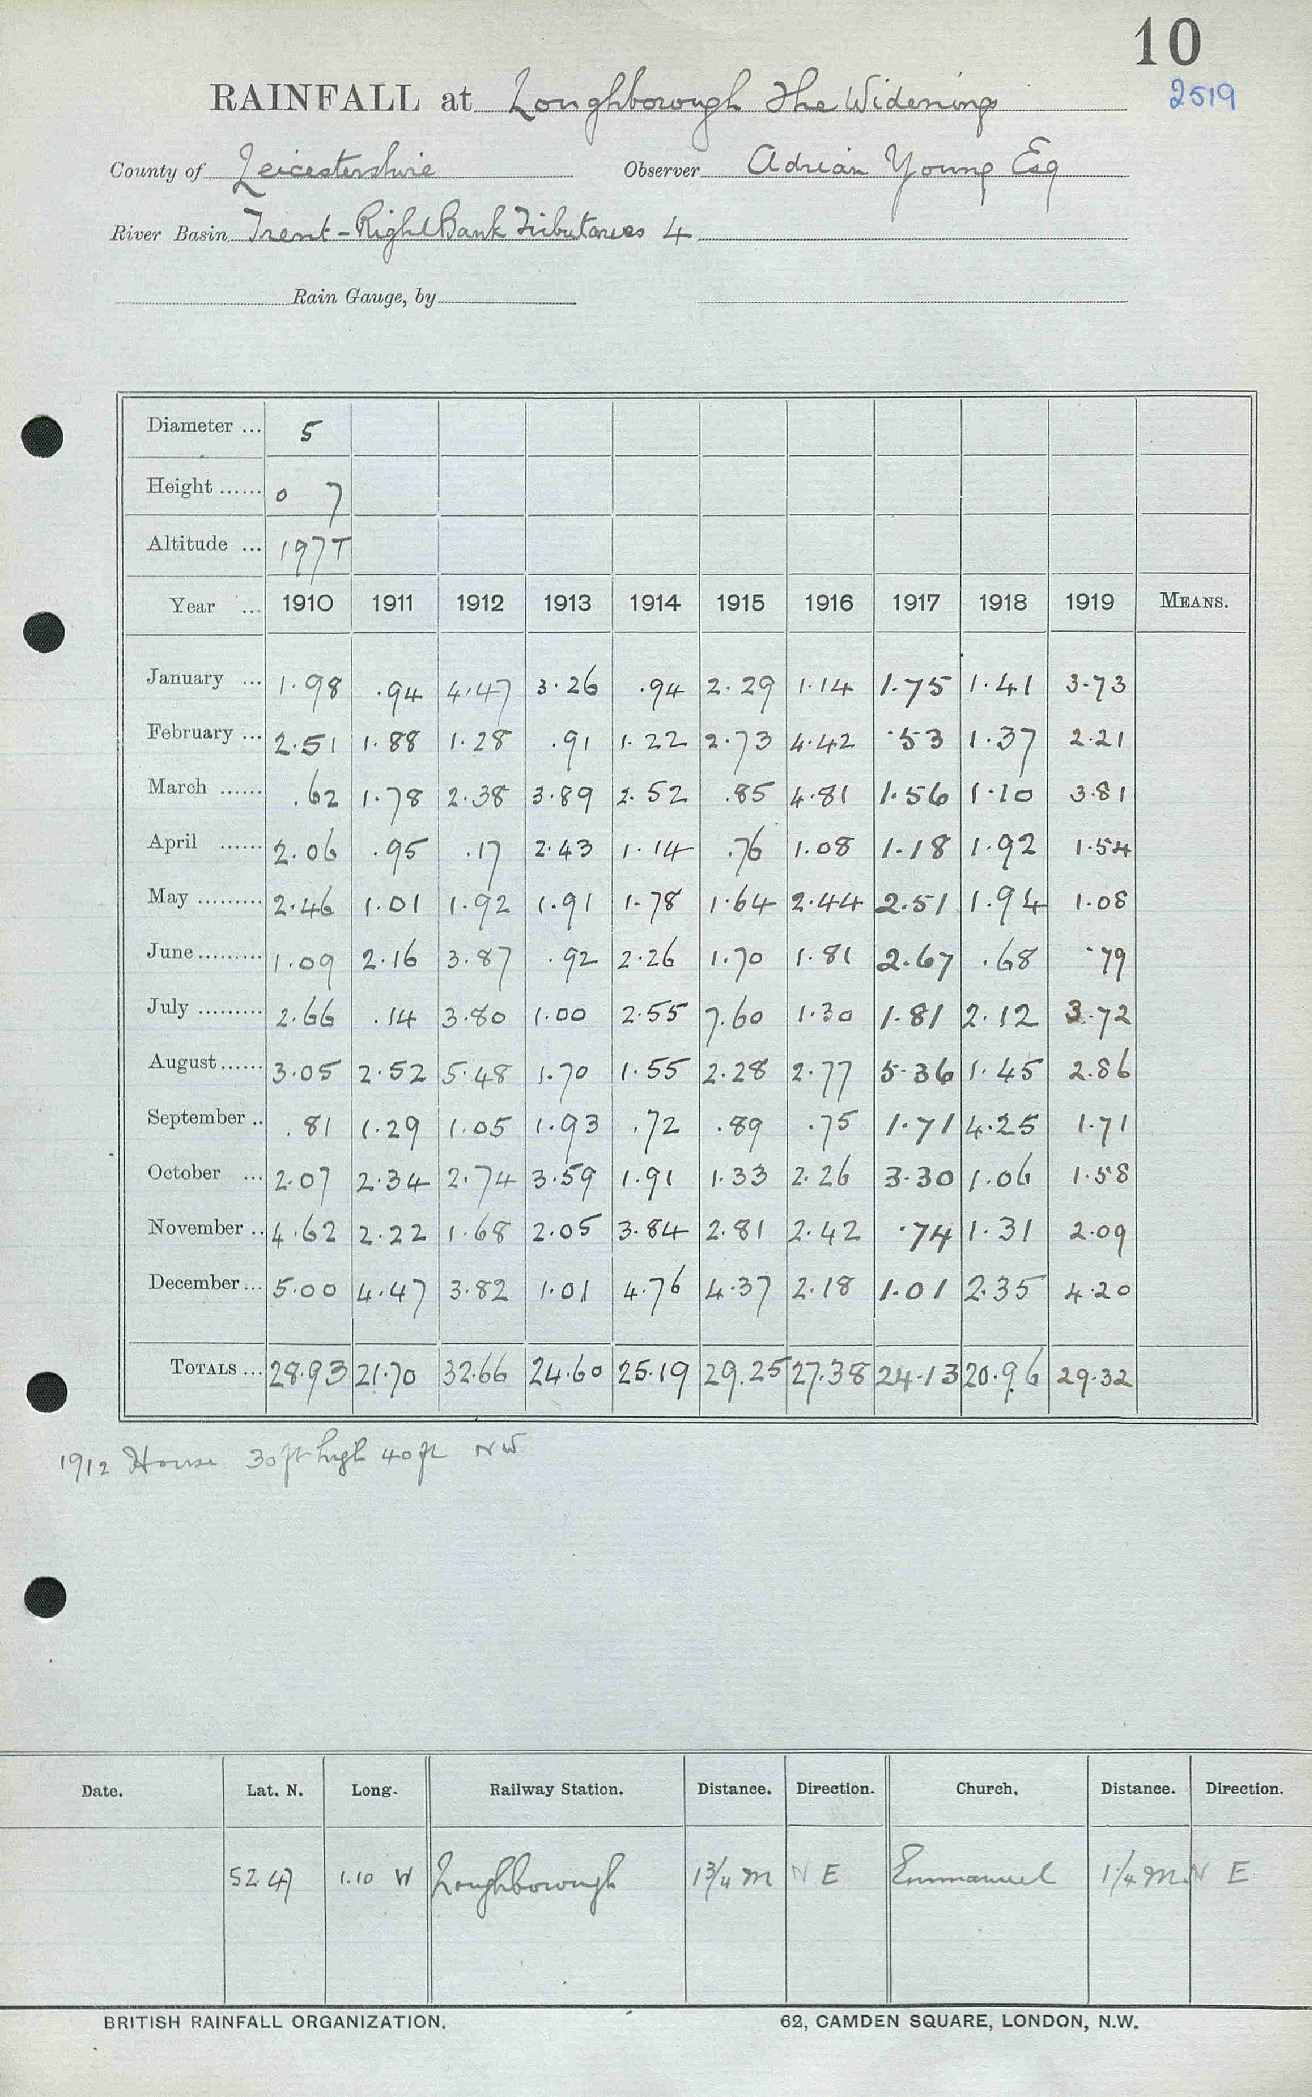 10
RAINFALL at Loughborough The Widenings
2519
County of Leicestershire Observer Adrian Young Esq
River Basin Trent - Right Bank Tributaries 4
Rain Gauge, by
Diameter ... 5
Height ...... 0 7
Altitude ... 197 T
Year ... 1910 1911 1912 1913 1914 1915 1916 1917 1918 1919 MEANS.
January ... 1.98 .94 4.47 3.26 .94 2.29 1.14 1.75 1.41 3.73
February ... 2.51 1.88 1.28 .91 1.22 2.73 4.42 .53 1.37 2.21
March ...... .62 1.78 2.38 3.89 2.52 .85 4.81 1.56 1.10 3.81
April ...... 2.06 .95 .17 2.43 1.14 .76 1.08 1.18 1.92 1.54
May ......... 2.46 1.01 1.92 1.91 1.78 1.64 2.44 2.51 1.94 1.08
June ......... 1.09 2.16 3.87 .92 2.26 1.70 1.81 2.67 .68 .79
July ......... 2.66 .14 3.80 1.00 2.55 7.60 1.30 1.81 2.12 3.72
August ...... 3.05 2.52 5.48 1.70 1.55 2.28 2.77 5.36 1.45 2.86
September .. .81 1.29 1.05 1.93 .72 .89 .75 1.71 4.25 1.71
October ... 2.07 2.34 2.74 3.59 1.91 1.33 2.26 3.30 1.06 1.58
November .. 4.62 2.22 1.68 2.05 3.84 2.81 2.42 .74 1.31 2.09
December ... 5.00 4.47 3.82 1.01 4.76 4.37 2.18 1.01 2.35 4.20
TOTALS ... 28.93 21.70 32.66 24.60 25.19 29.25 27.38 24.13 20.96 29.32
1912 House 30 ft high 40 ft NW
Date. Lat. N. Long. Railway Station. Distance. Direction. Church. Distance. Direction.
52 47 1.10 W Loughborough 1 3/4 M N E Emmanuel 1 1/4 M. N E
BRITISH RAINFALL ORGANIZATION. 62, CAMDEN SQUARE, LONDON, N.W.